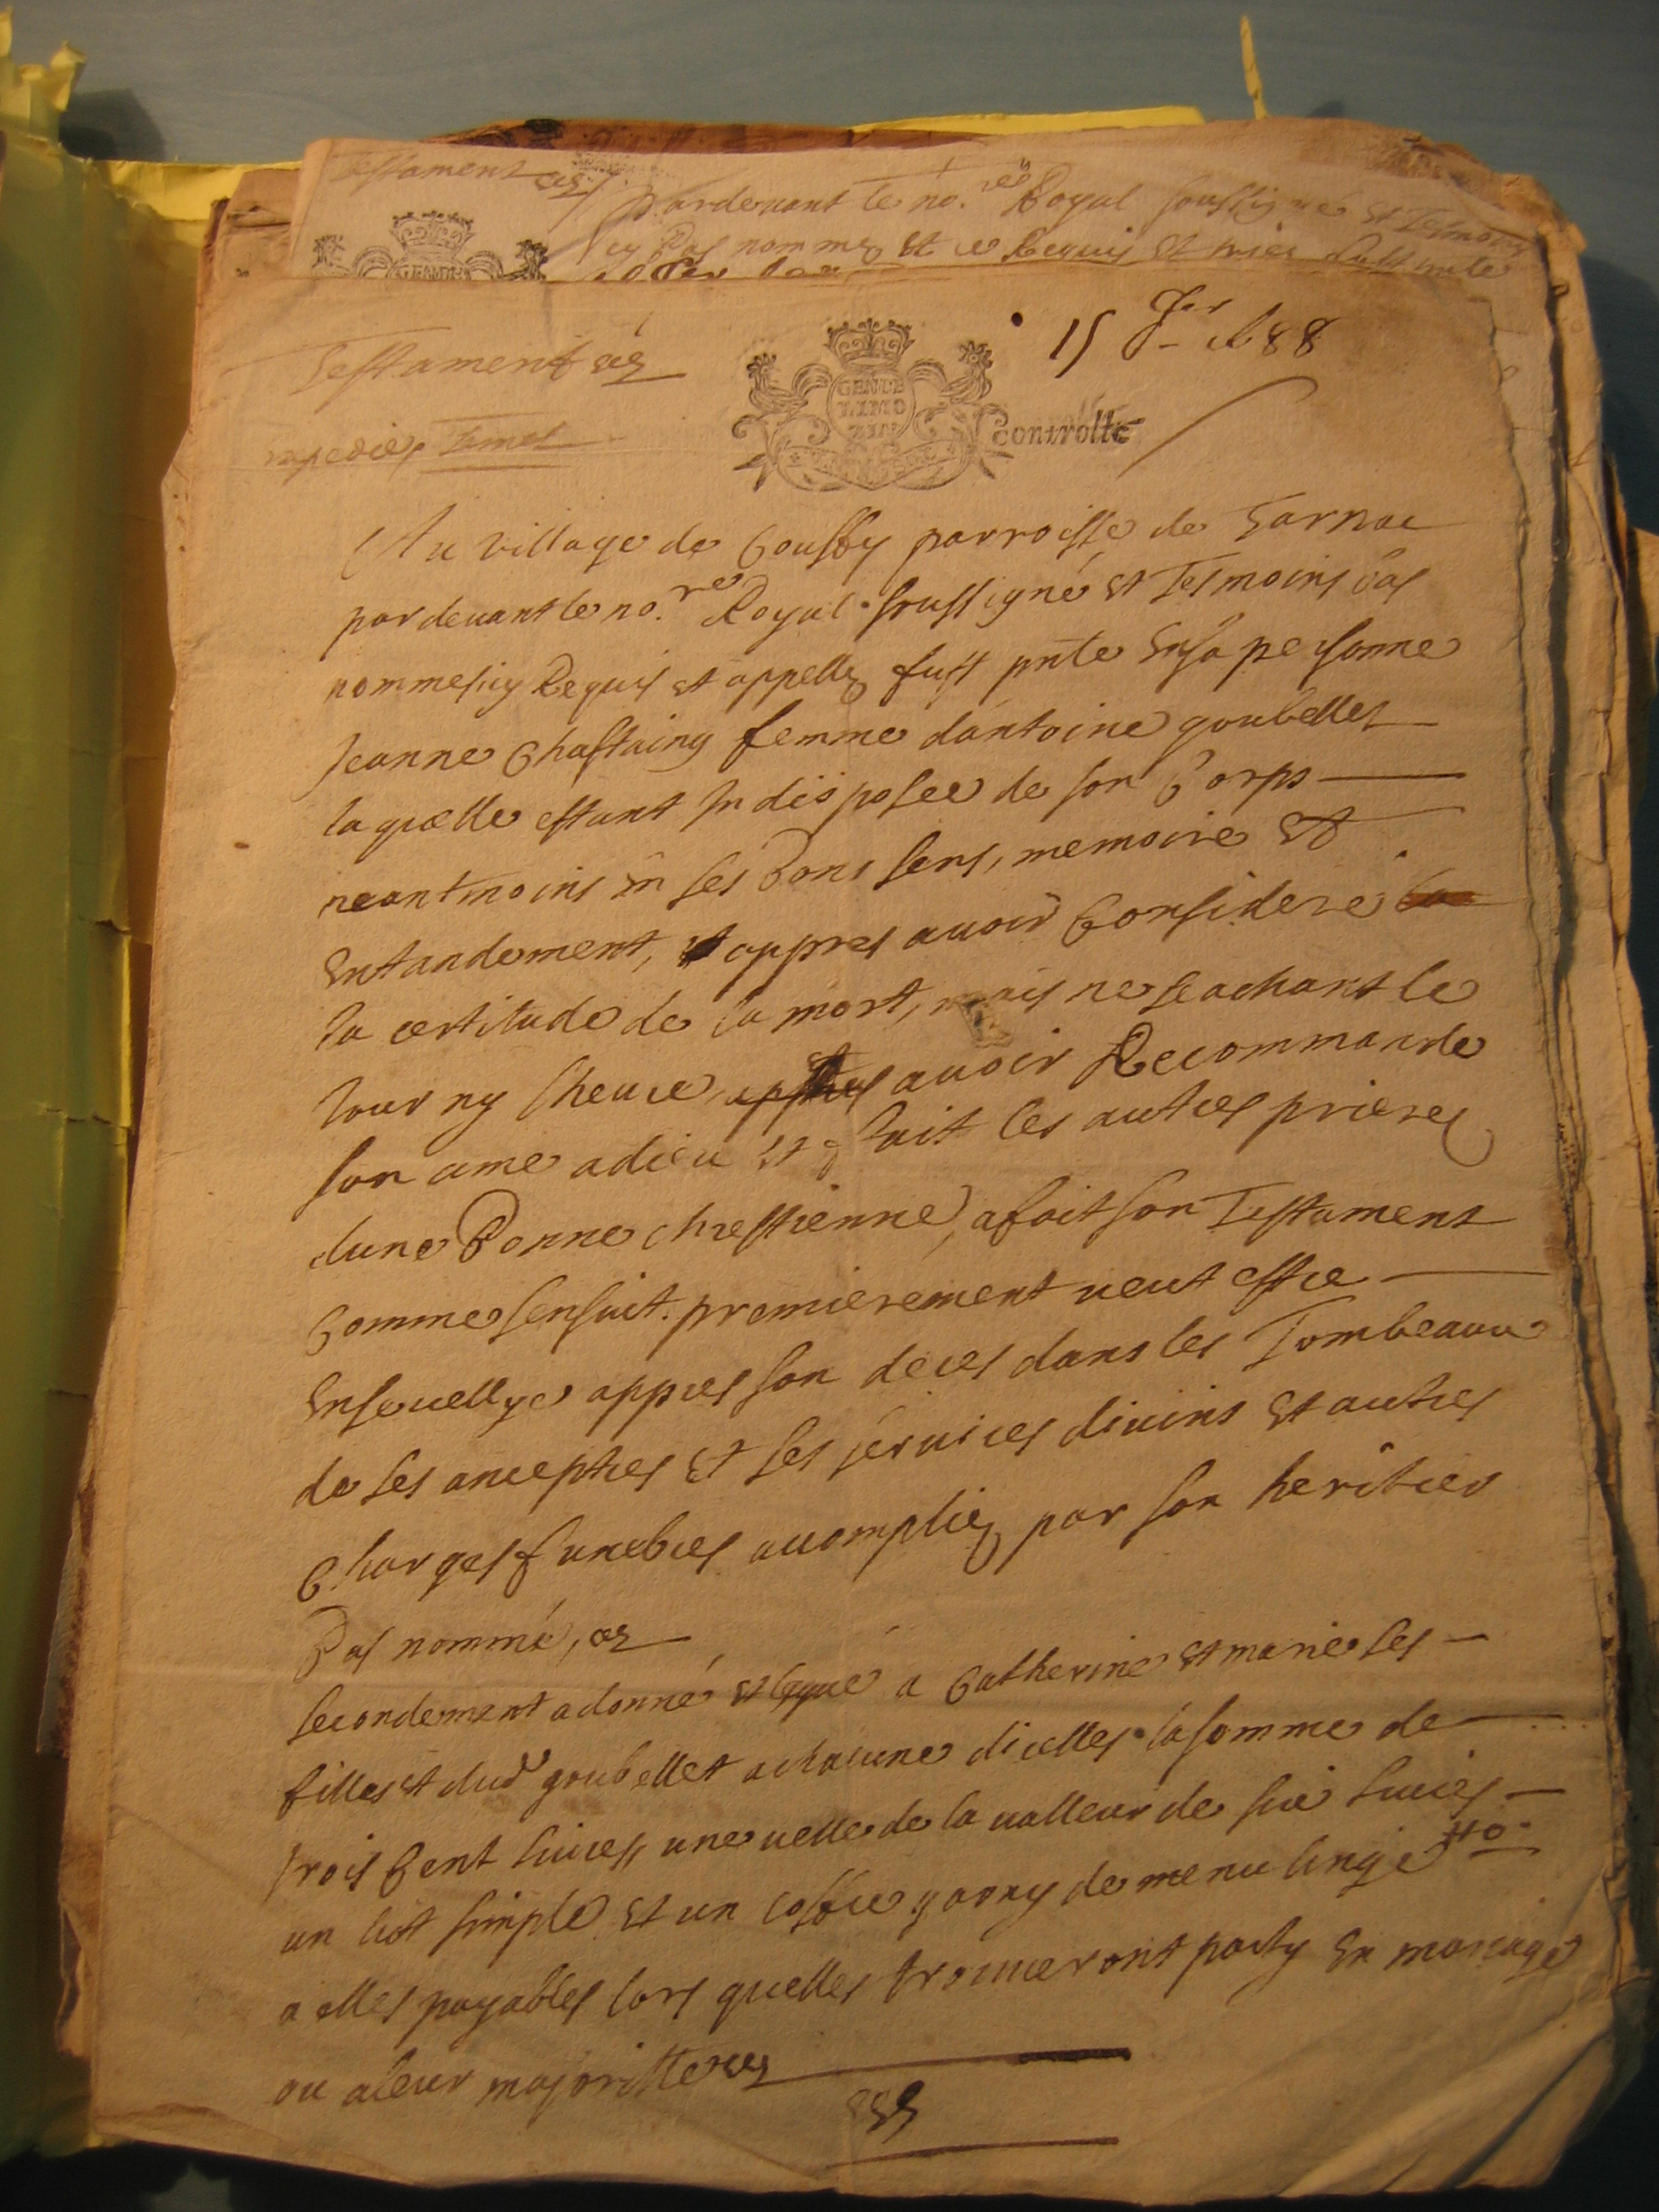 Testament
pardevant le no.re Royal soussigné et tesmoins
cy bas nommez et ce Requis et
Testament
15 Jer 1688
GENDE
LIMO
ZIN
controlle
expedie
Au village de Coussy parroisse de Tarnac
par devant le no.re Royal soussigné et tesmoins bas
nommes icy Requis et appellez fust pnte en sa personne
Jeanne Chastaing femme dantoine goubelles
laquelle estant Indisposee de son Corps
neantmoins en ses bons sens, memoire et
entandement, et appres avoir Consideré
la certitude de la mort, mais ne scachant le
Jour ny lheure avoir Recommande
son ame a dieu et fait les autres prieres
dune Bonne chrestienne, a fait son Testament
Comme sensuit. premierement veut estre
ensevellye appres son deces dans les Tombeaux
de ses anceptres et ses services divins et autres
Charges funebres accomplies par son heritier
Bas nommé,
secondement a donné et legué a Catherine et marie ses
filles et dud goubelles a chacune dicelles la somme de
trois Cent livres, une velle de la valleur de six livres
un lict simple et un coffre garny de menu linge
a elles payables lors quelles trouveront party en mariage
ou a leur majoritte